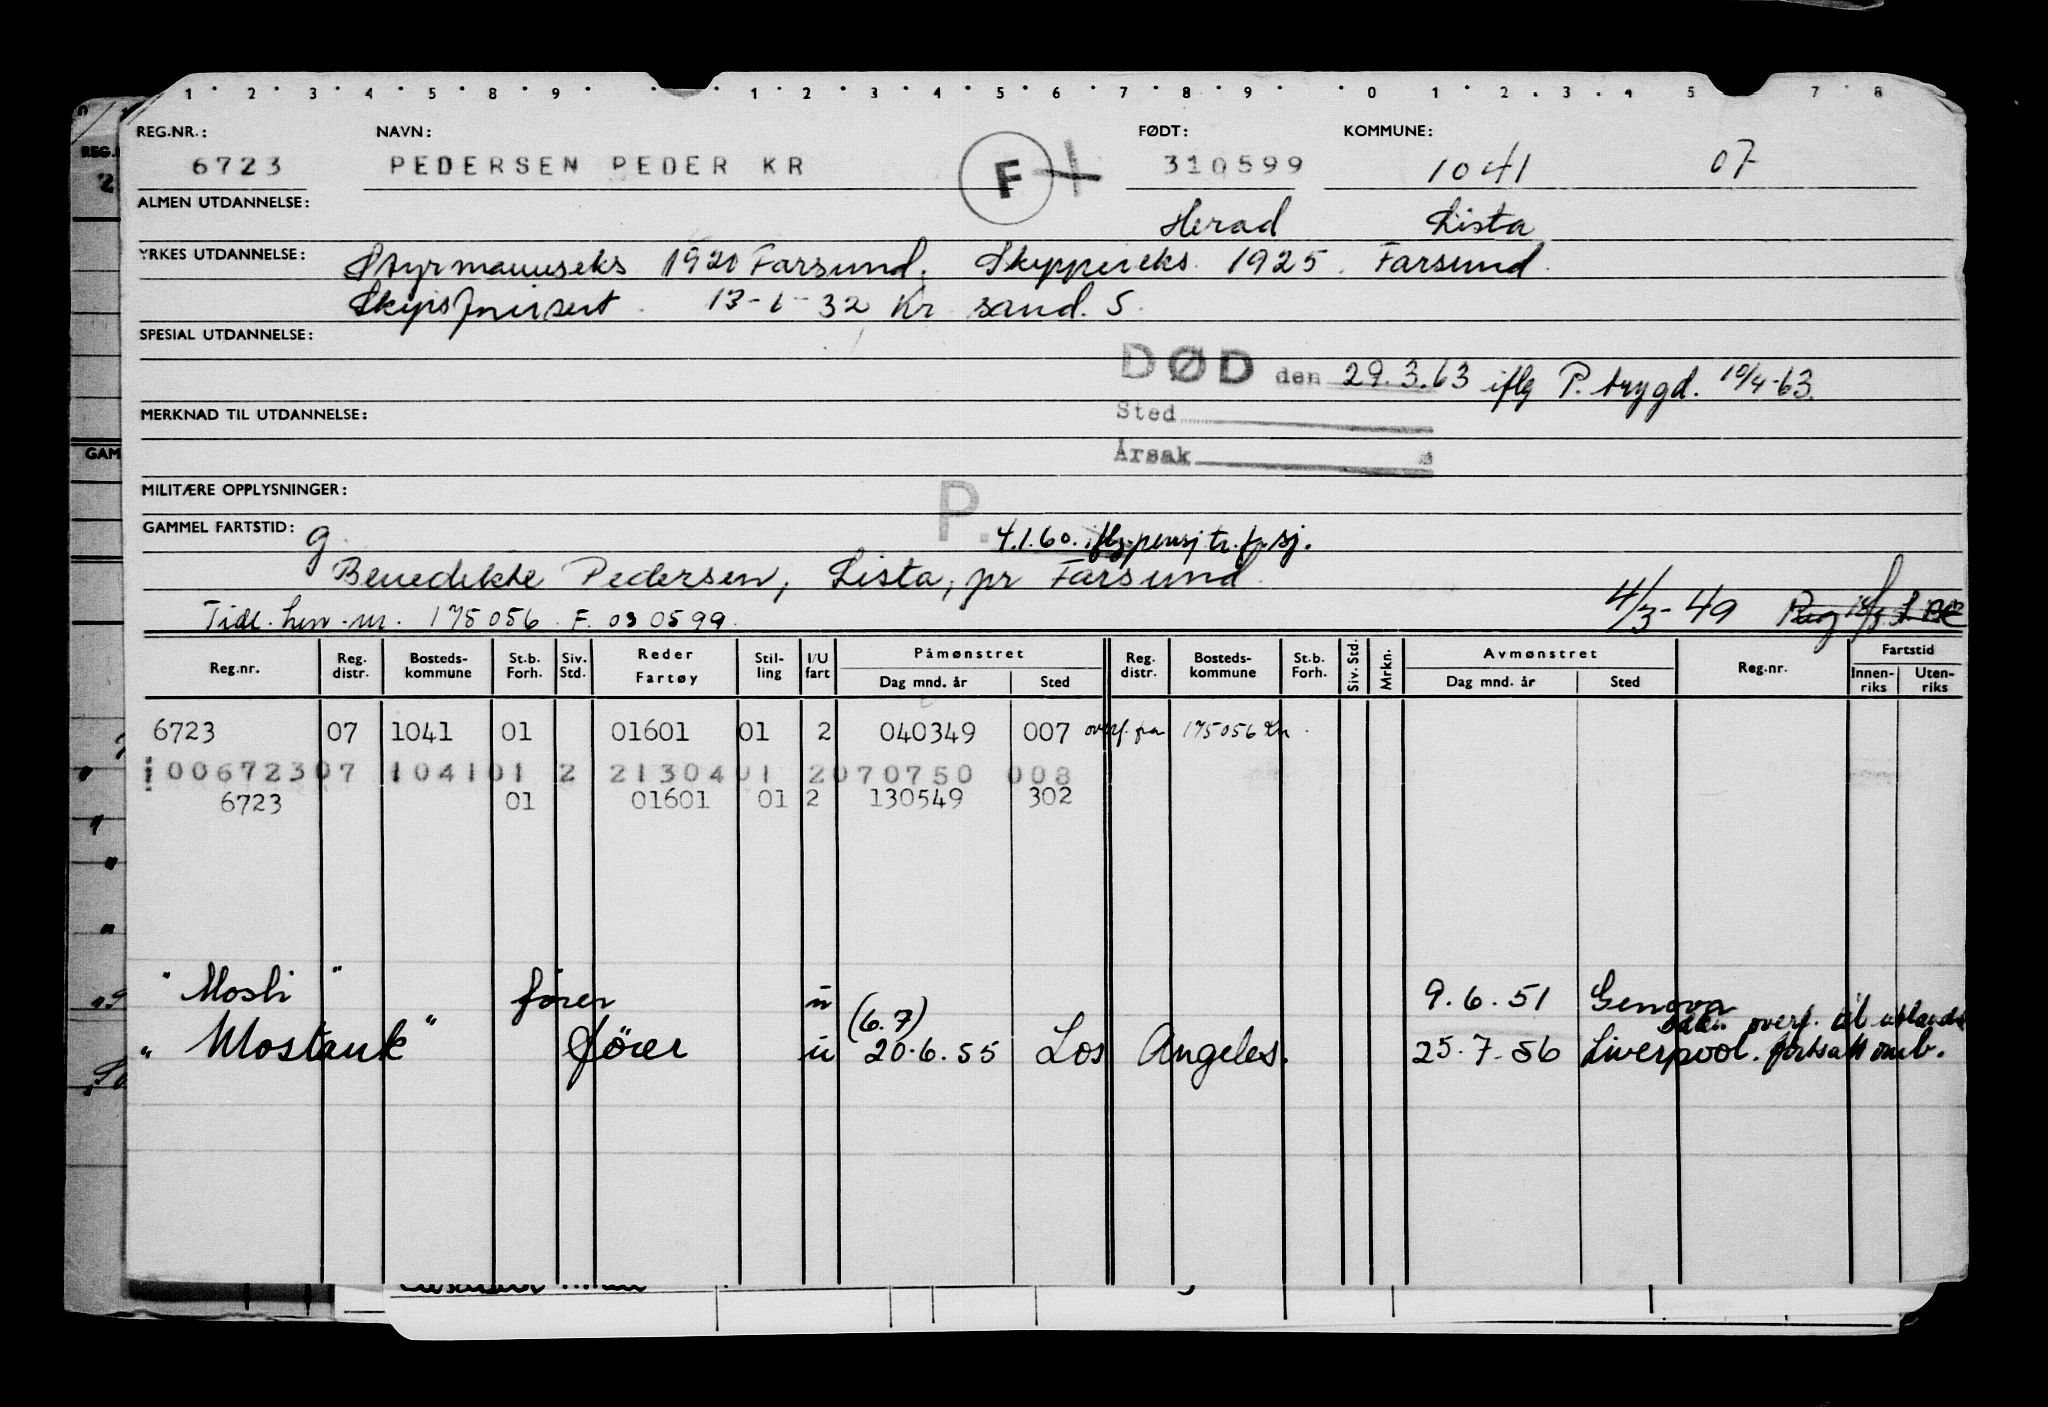 1 2 3 4 5 8 9 1 2 3 4 5 6 7 8 9 0 1 2 3 4 5 7 8
REG.NR.: NAVN: FØDT: KOMMUNE:
6723 PEDERSEN PEDER KR F + 310599 1041 07
ALMEN UTDANNELSE: Herad Lista
YRKES UTDANNELSE: Styrmannseks 1920 Farsund. Skippereks. 1925. Farsund.
13-1-32 Kr sand. S.
SPESIAL UTDANNELSE:
DØD den 29.3.63 iflg P. trygd. 10/4-63.
MERKNAD TIL UTDANNELSE: Sted
Årsak
MILITÆRE OPPLYSNINGER: P.
GAMMEL FARTSTID: g 4.1.60. iflg. pensj tr. f. sj.
Benedikte Pedersen, Lista, pr Farsund.
Tidl. hen. nr. 175056. F. 030599. 4/3-49
Reg.nr. Reg. distr. Bosteds-kommune St.b. Forh. Siv. Std. Reder Fartøy Stil-ling I/U fart Påmønstret Dag mnd. år Sted Reg. distr. Bosteds-kommune St.b. Forh. Siv. Std. Mrkn. Avmønstret Dag mnd. år Sted Reg.nr. Fartstid Innen-riks Uten-riks
6723 07 1041 01 01601 01 2 040349 007 overf. fra 175056
100672307 104101 2 2130401 2070750 008
6723 01 01601 01 2 130549 302
"Mosli" fører u 9.6.51 Genova
(6.7) overf. til utlandsk
"Mostank" fører u 20.6.55 Los Angeles. 25.7.56 Liverpool. fortsatt omb.